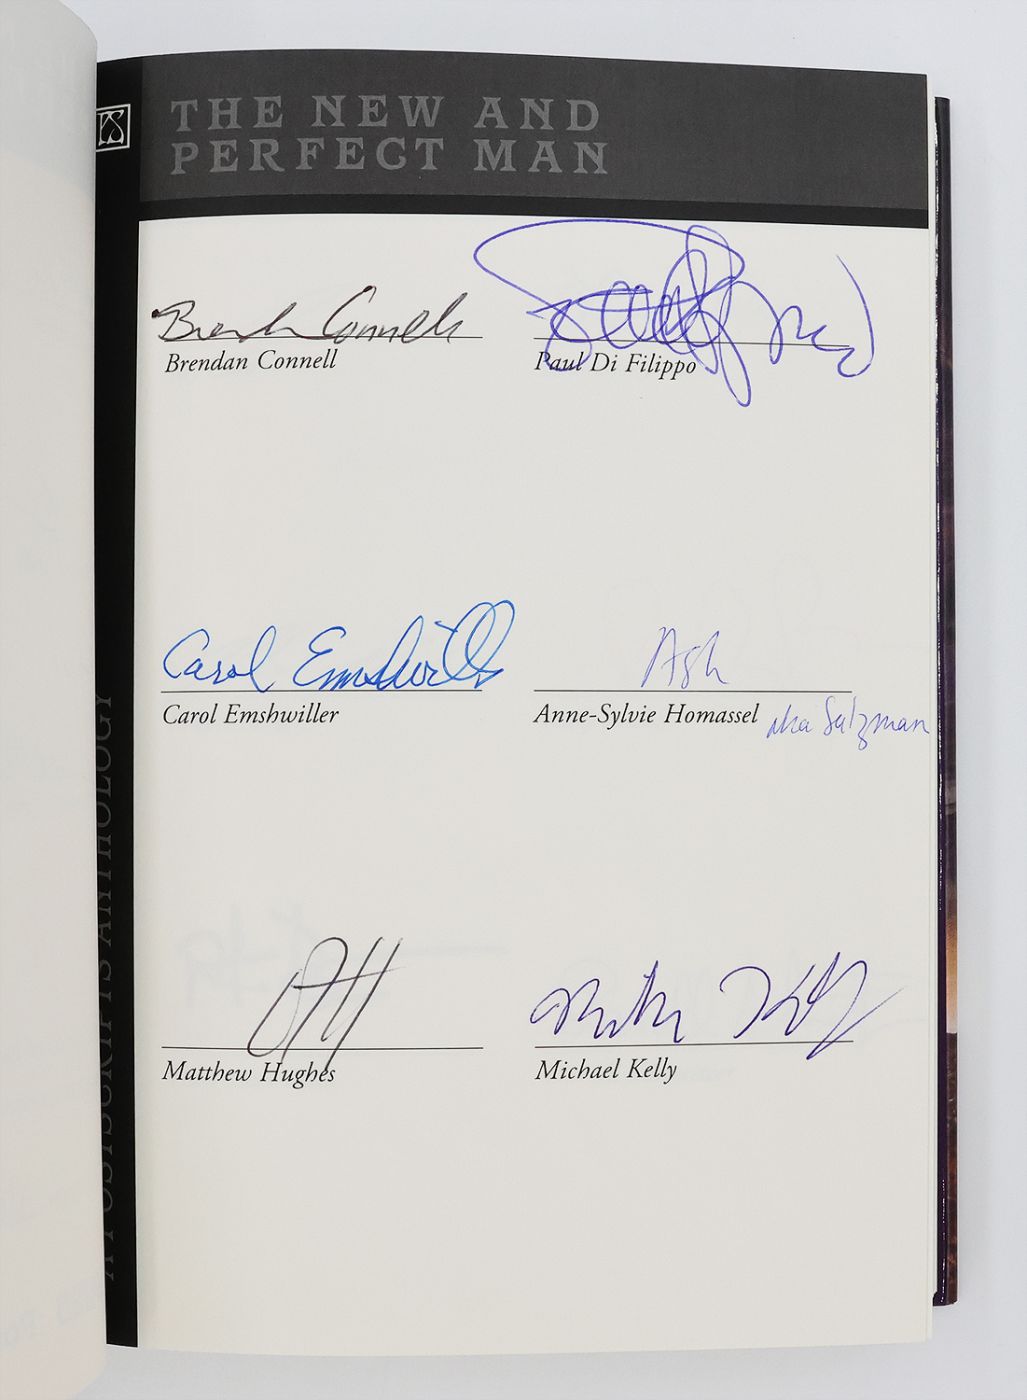 THE NEW AND
PERFECT MAN
Brendan Connell
Brendan Connell
Paul Di Filippo
Carol Emshwiller
Carol Emshwiller
Ash
Anne-Sylvie Homassel
aka Salzman
Matthew Hughes
Michael Kelly
A POSTSCRIPTS ANTHOLOGY
PS